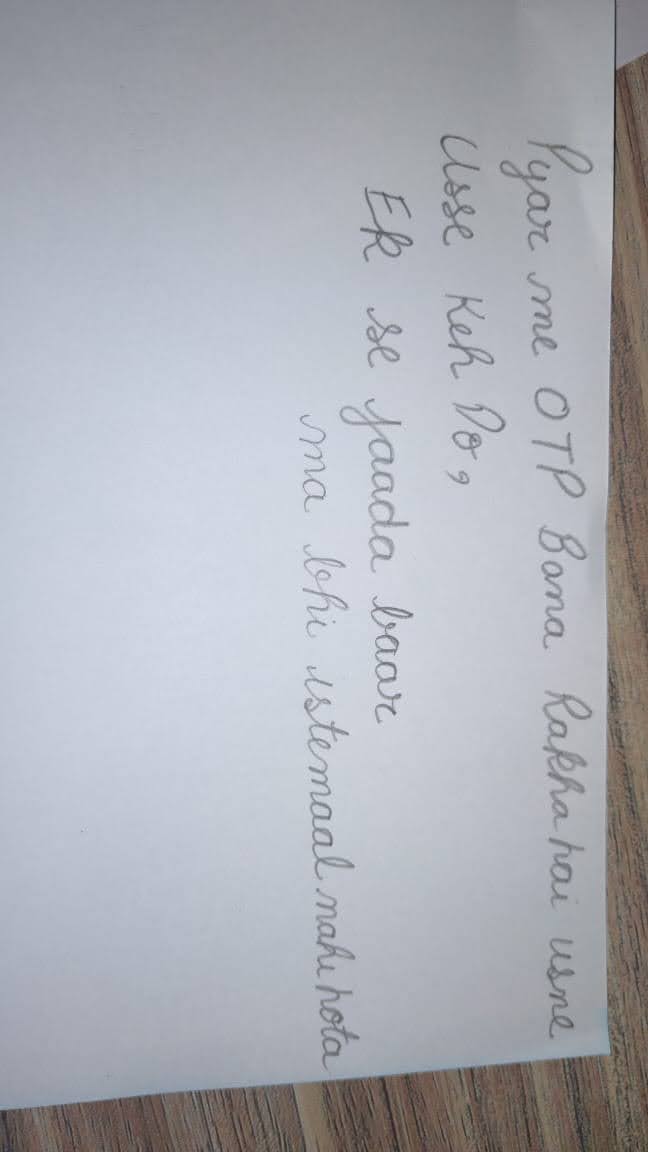 Pyar me OTP Bana Rakha hai usne
Usse Keh Do,
Ek se jaada baar
ma bhi istemaal nahi hota